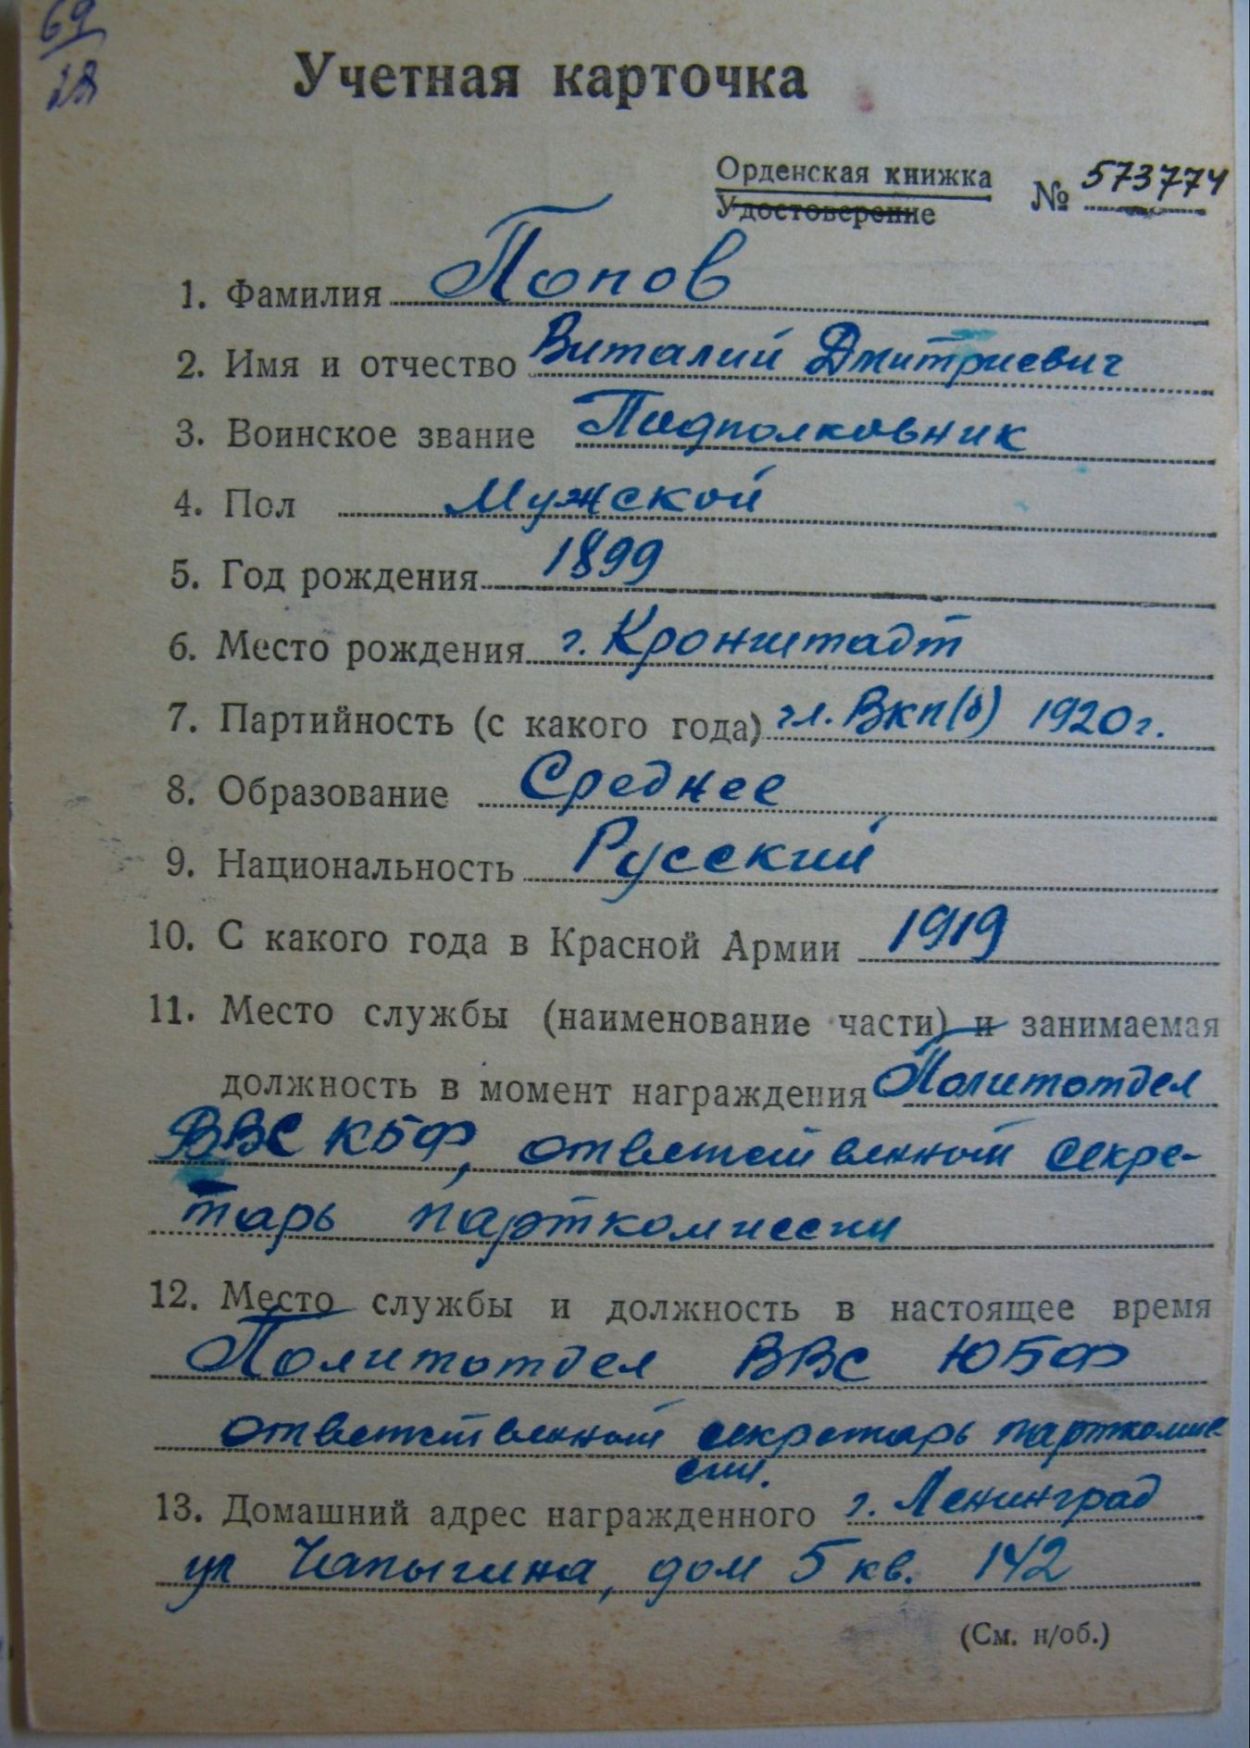 69
28
Учетная карточка
Орденская книжка
Удостоверение
№ 573774
1. Фамилия Попов
2. Имя и отчество Виталий Дмитриевич
3. Воинское звание Подполковник
4. Пол Мужской
5. Год рождения 1899
6. Место рождения г. Кронштадт
7. Партийность (с какого года) чл. ВКП(б) 1920 г.
8. Образование Среднее
9. Национальность Русский
10. С какого года в Красной Армии 1919
11. Место службы (наименование части) и занимаемая
должность в момент награждения Политотдел
ВВС КБФ, ответственный секре-
тарь парткомиссии
12. Место службы и должность в настоящее время
Политотдел ВВС ЮБФ
ответственный секретарь парткомис-
сии.
13. Домашний адрес награжденного г. Ленинград
ул Чапыгина, дом 5 кв. 142
(См. н/об.)